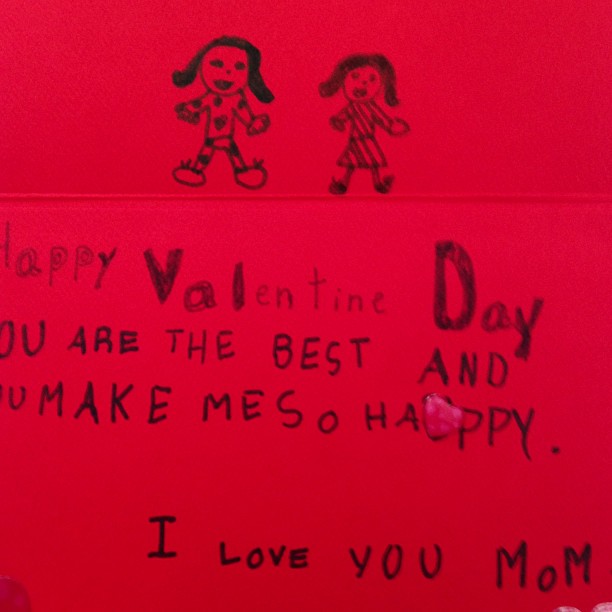 Happy Valentine Day
YOU ARE THE BEST AND
YOU MAKE ME So HAPPY.
I LOVE YOU MoM